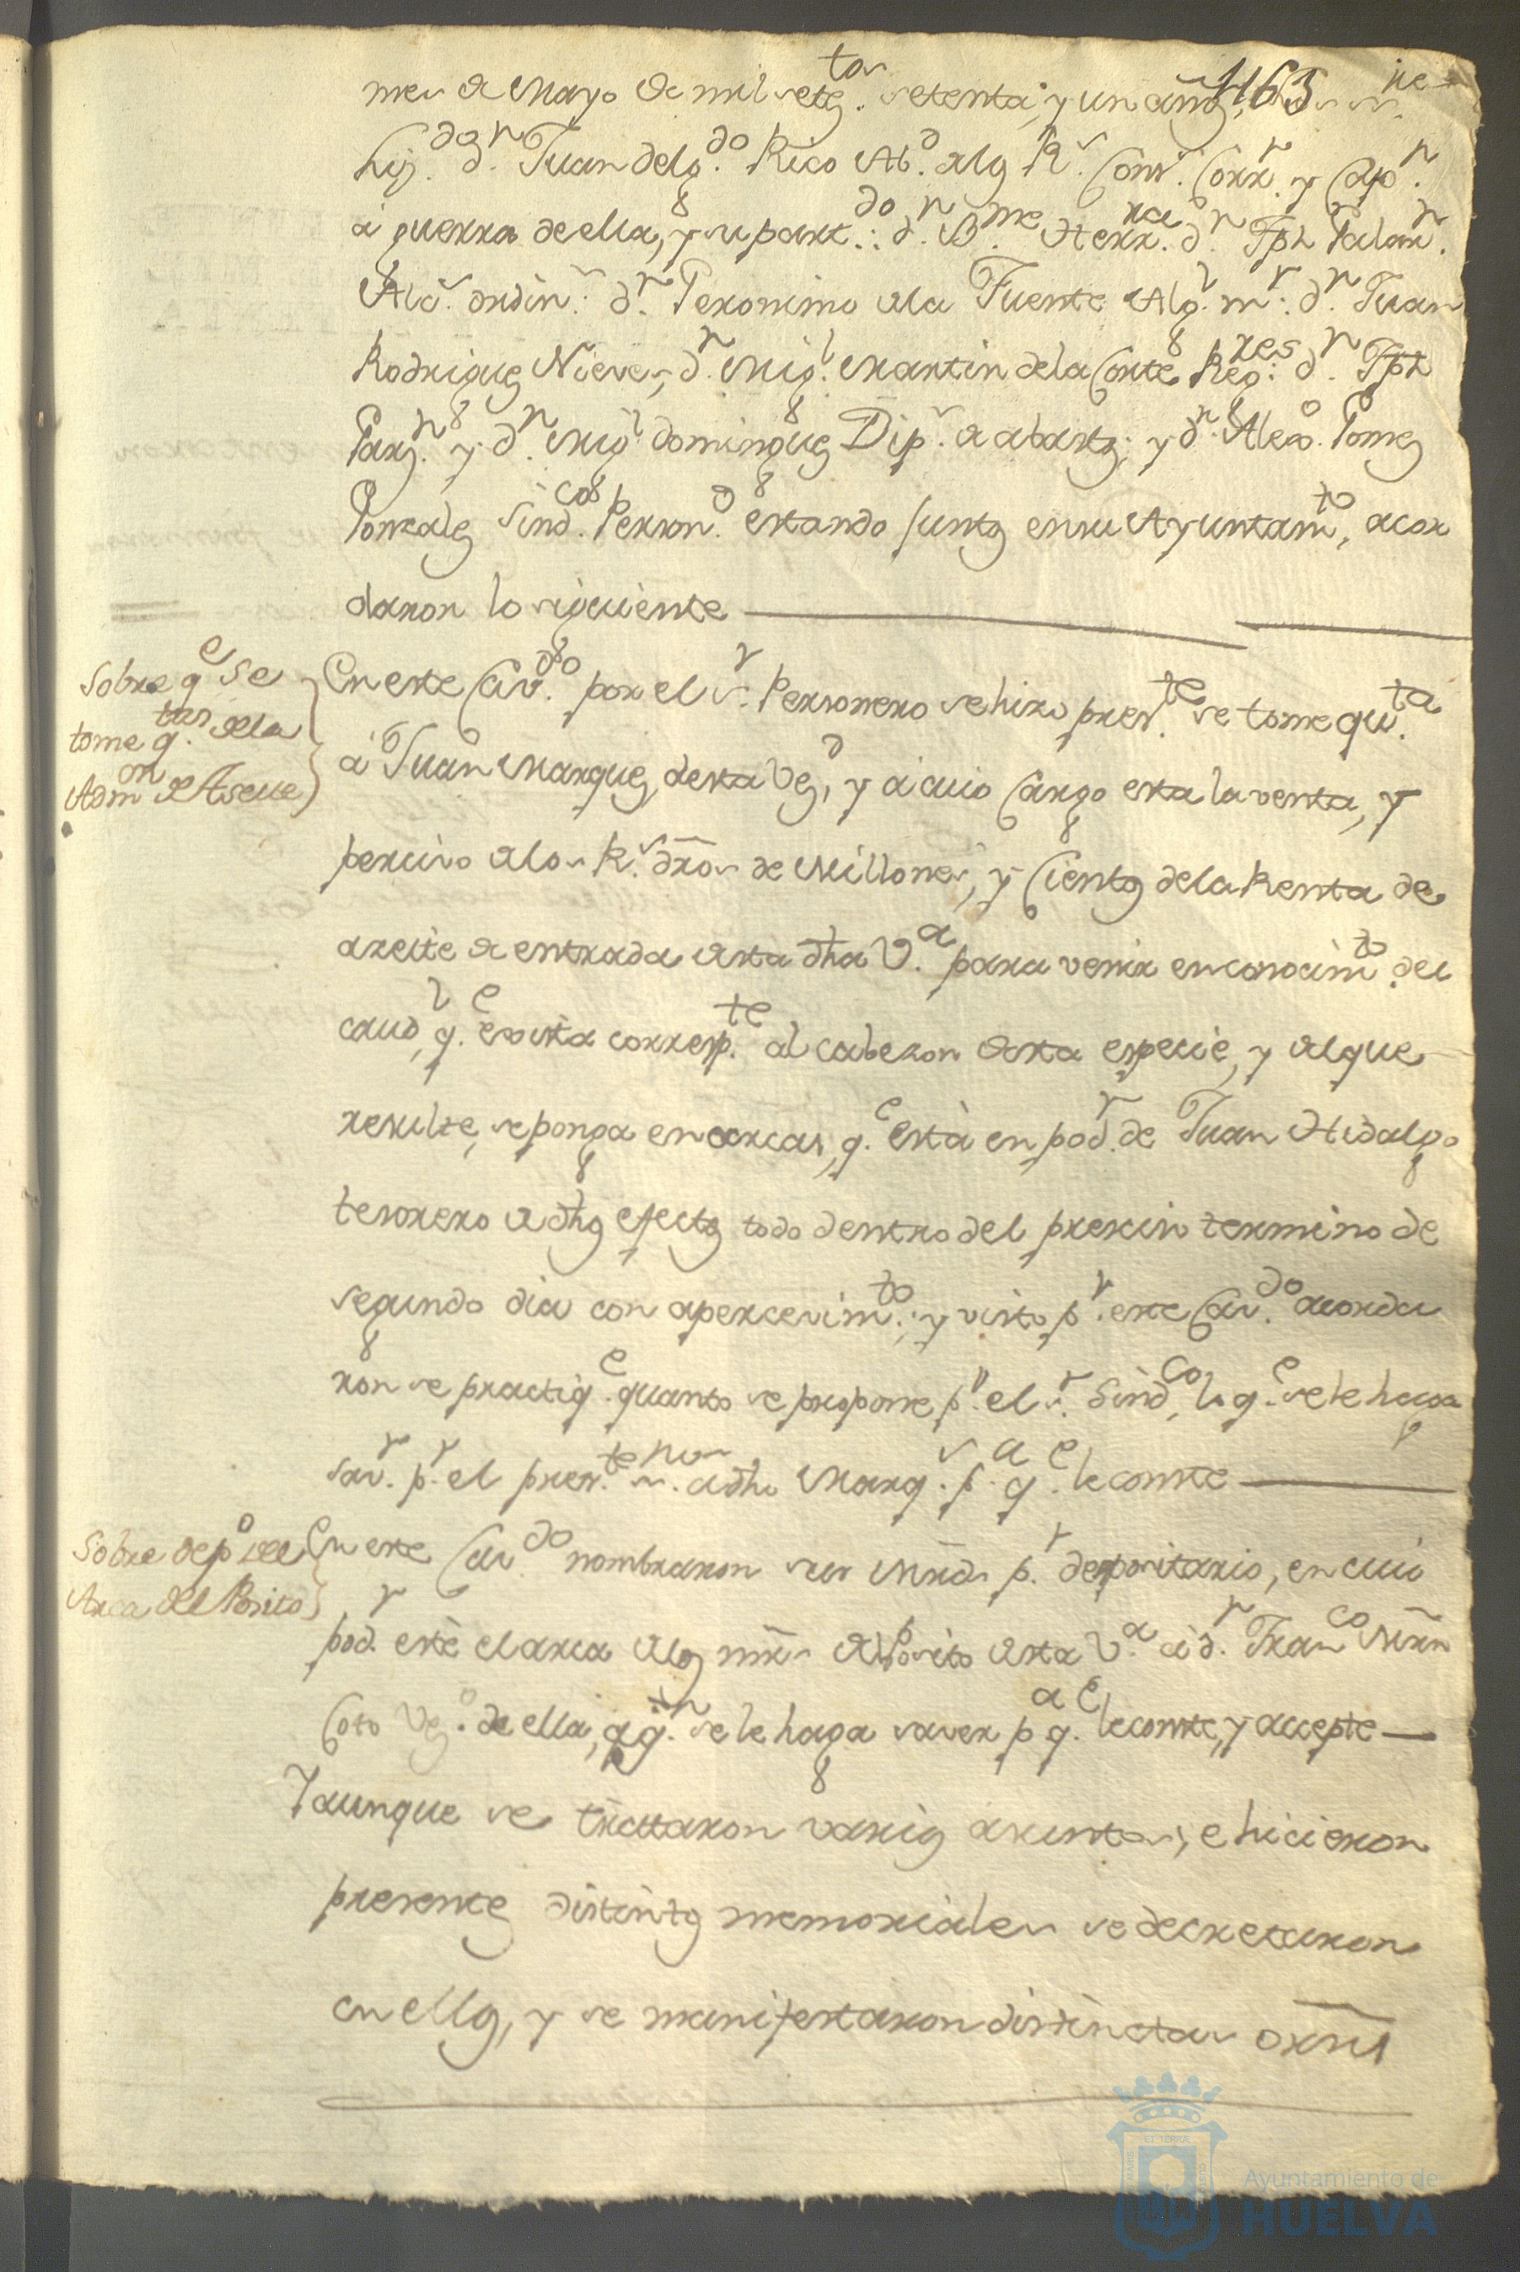 mes de Mayo de mil setz.tos setenta, y un años, 1163
Liz.do d.n Juan Delg.do Rico Ab.do de los R.s Cons.s Corr.r y Cap.n
à guerra de ella, y su part.do: d.n B.me Herr.ra d.n Jph Galan.
Alc.s ordin.s d.n Geronimo de la Fuente Alg.l m.r: d.n Juan
Rodriguez Nieves, d.n Mig.l Martin de la Corte Reg.res: d.n Jph
Garz.n y d.n Mig.l Dominguez Dip.s de abastos; y d.n Alexo. Gomez
Gonzalez Sind.cos Person.o estando juntos en su Ayuntam.to, acor
daron lo siguiente
Sobre q.e Se
tome q.tas de la
Adm.on de Aseite
En este Cav.do por el s.r Personero se hizo pres.te se tome qu.ta
à Juan Marquez, desta Vez.d, y à cuio Cargo esta la venta, y
percivo de los R.s dros de Millones, y Cientos de la Renta de
azeite de entrada desta dha V.a para venir en conocim.to del
caud.l, q.e exista corresp.te al cabezon desta especie, y el que
resulte, se ponga en arcas, q.e està en pod.r de Juan Hidalgo
tesorero de dhos efectos todo dentro del preciso termino de
segundo dia con apercevim.to; y visto p.r este Cav.do acorda
ron se practiq.e quanto se propone p.r el s.r Sind.co, lo q.e se le haga
sav.r p.r el pres.te à dho Marq.s p.a q.e le conste
Sobre dep.o del
Arca del Posito
En este Cav.do nombraron sus Mrds p.r depositario, en cuio
pod.r estè el arca de los mrs del Posito desta V.a à d.n Fran.co Mrn
Coto Vez.o de ella, à q.n se le haga saver p.a q.e le conste, y accepte
Y aunque se trataron varios asuntos, e hicieron
presentes distintos memoriales se decretaron
en ellos, y se manifestaron distintas orns
Ayuntamiento de
HUELVA